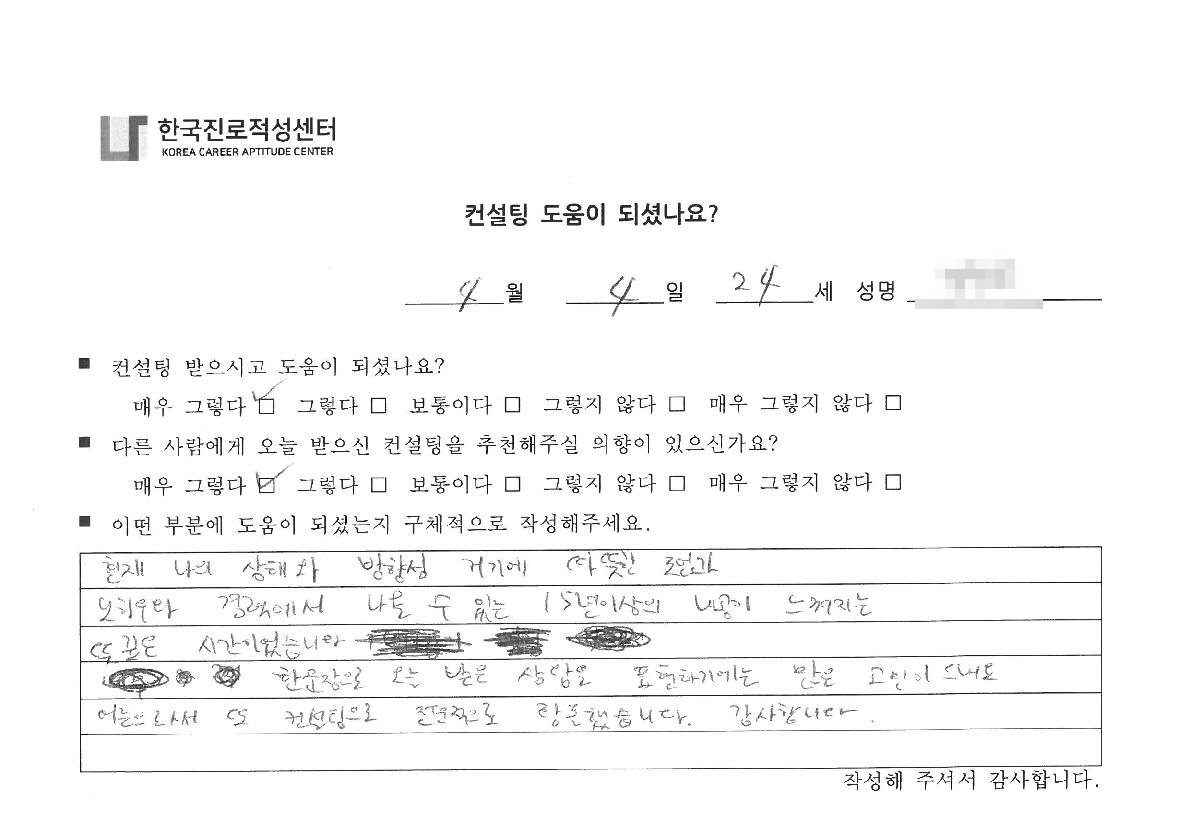 한국진로적성센터
KOREA CAREER APTITUDE CENTER
컨설팅 도움이 되셨나요?
4월 4일 24세 성명
■ 컨설팅 받으시고 도움이 되셨나요?
매우 그렇다 ☑ 그렇다 □ 보통이다 □ 그렇지 않다 □ 매우 그렇지 않다 □
■ 다른 사람에게 오늘 받으신 컨설팅을 추천해주실 의향이 있으신가요?
매우 그렇다 ☑ 그렇다 □ 보통이다 □ 그렇지 않다 □ 매우 그렇지 않다 □
■ 이떤 부분에 도움이 되셨는지 구체적으로 작성해주세요.
현재 나의 상태와 방향성 거기에 따뜻한 조언과
노하우와 경력에서 나올 수 있는 15년이상의 내공이 느껴지는
또 깊은 시간이었습니다
한문장으로 오늘 받은 상담을 표현하기에는 많은 고민이 드네요
어른으로서 또 컨설팅으로 전문적으로 감사합니다.
작성해 주셔서 감사합니다.